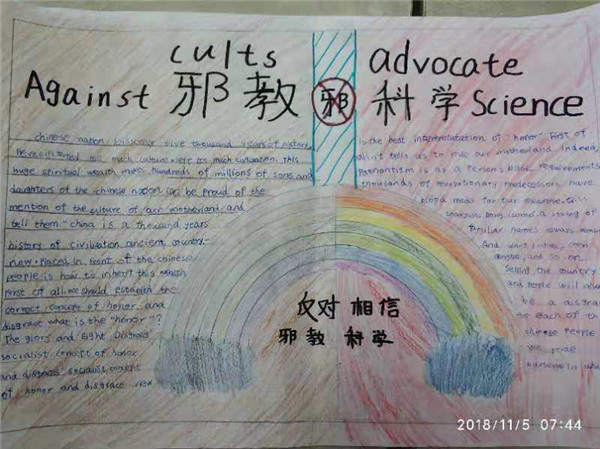 cults
Against 邪教 邪 科学 Science
advocate
chinese nation five thousand years of
so much culture left so much civilization, this
huge spiritual wealth make hundreds of millions of sons and
daughters of the chinese nation can be proud of the
mention of the culture of our motherland, and
tell them "china is a thousand years
history of civilization ancient country."
now. placed in front of the chinese
people is how to inherit this wealth
first of all, we should establish the
correct concept of honor and
disgrace what is the "honor"?
The glory and Eight Disgraces
socialist concept of honor
and disgrace socialist concept
of honor and disgrace view
is the best interpretatation of "honor" First of
all, it tells us to love our motherland Indeed,
Patriotism is as a person's basic requirements
thousands of revolutionary predecessors have
blood for our example. Still
a string of
familiar names always
And want
and so on
Selling the country
and people will
be a disgrace
to each of the
chinese people
We
反对 相信
邪教 科学
2018/11/5 07:44